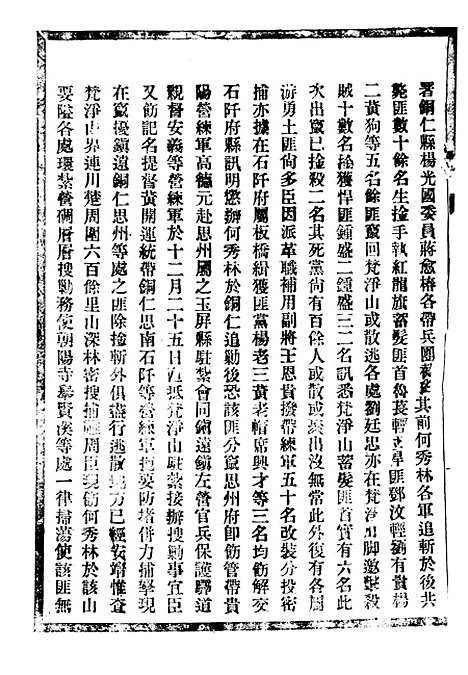 署銅仁縣楊光國委員蔣愈椿各帶兵團截其前何秀林各軍追斬於後共
斃匪數十餘名生擒手執紅龍旗蓄髮匪首魯萇輕立皐匪鄧汶輕劉有貴楊
二黃狗等五名餘匪竄回梵淨山或散逃各處劉廷忠亦在梵淨山脚邀擊殺
賊十數名擒獲悍匪鍾盛二鍾盛三二名訊悉梵淨山蓄髮匪首實有六名此
次出竄已擒殺二名其死黨尚有百餘人或散或聚出沒無常此外復有各屬
游勇土匪尚多臣因派革職補用副將王恩貴撥帶練軍五十名改裝分投密
捕亦據在石阡府屬板橋緝獲匪黨楊老三黃老帽席興才等三名均飭解交
石阡府縣訊明懲辦何秀林於銅仁追勦後恐該匪分竄思州府即飭管帶貴
陽營練軍高德元赴思州屬之玉屏縣駐紮會同鎮遠鎮左營官兵保護驛道
親督安義等營練軍於十二月二十五日直抵梵淨山駐紮接辦搜勦事宜臣
又飭記名提督黃開運統帶銅仁思南石阡等營練軍扼要防堵併力捕拏現
在竄擾鎮遠銅仁思州等處之匪除擒斬外俱盡行逃散地方已經安靖惟查
梵淨山界連川楚周圍六百餘里山深林密搜捕難周臣現飭何秀林於該山
要隘各處環紮營碉層層搜勦務使朝陽寺搴賢溪等處一律掃蕩使該匪無